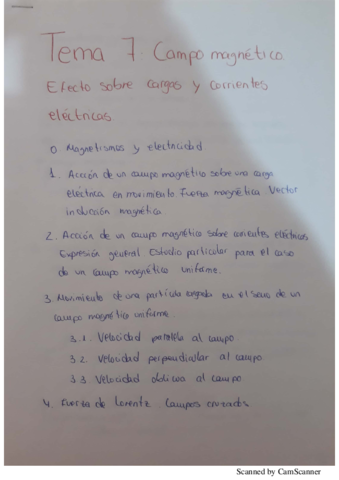 Tema 7. Campo magnético.
Efecto sobre cargas y corrientes
eléctricas
0 Magnetismos y electricidad
1. Acción de un campo magnético sobre una carga
eléctrica en movimiento. Fuerza magnética. Vector
inducción magnética
2. Acción de un campo magnético sobre corrientes eléctricas
Expresión general. Estudio particular para el caso
de un campo magnético uniforme.
3. Movimiento de una partícula cargada en el seno de un
campo magnético uniforme.
3.1. Velocidad paralela al campo
3.2. Velocidad perpendicular al campo
3.3. Velocidad oblicua al campo
4. Fuerza de Lorentz. Campos cruzados
Scanned by CamScanner